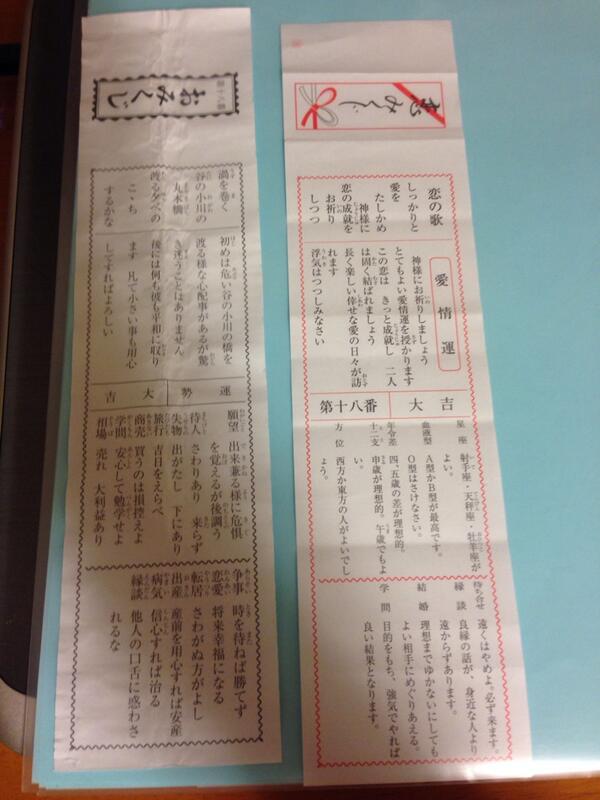 恋みくじ
恋の歌
しっかりと
愛を
たしかめ
神様に
恋の成就を
お祈り
しつつ
愛情運
神様にお祈りしましょう
とてもよい愛情運を授かります
この恋は きっと成就し 二人
は固く結ばれましょう
長く楽しい倖せな愛の日々が訪
れます
浮気はつつしみなさい
大吉
第十八番
星座 射手座・天秤座・牡羊座が
よい。
血液型 A型かB型が最高です。
O型はさけなさい。
年令差 四、五歳の差が理想的。
十二支 申歳が理想的。午歳でもよ
い。
方位 西方か東方の人がよいでし
ょう。
待ち合せ 遠くはやめよ。必ず来ます。
縁談 良縁の話が、身近な人より
遠からずあります。
結婚 理想までゆかないにしても
よい相手にめぐりあえる。
学問 目的をもち、強気でやれば
良い結果となります。
第十八番
おみくじ
渦を巻く
谷の小川の
丸木橋
渡る夕べの
こゝち
するかな
初めは危い谷の小川の橋を
渡る様な心配事があるが驚
き迷うことはありません
後には何も彼も平和に収り
ます 凡て小さい事も用心
してすればよろしい
運勢 大吉
願望 出来兼る様に危惧
を覚えるが後調う
待人 さわりあり 来らず
失物 出がたし 下にあり
旅行 吉日をえらべ
商売 買うのは損控えよ
学問 安心して勉学せよ
相場 売れ 大利益あり
争事 時を待ねば勝てず
恋愛 将来幸福になる
転居 さわがぬ方がよし
出産 産前を用心すれば安産
病気 信心すれば治る
縁談 他人の口舌に惑わさ
れるな